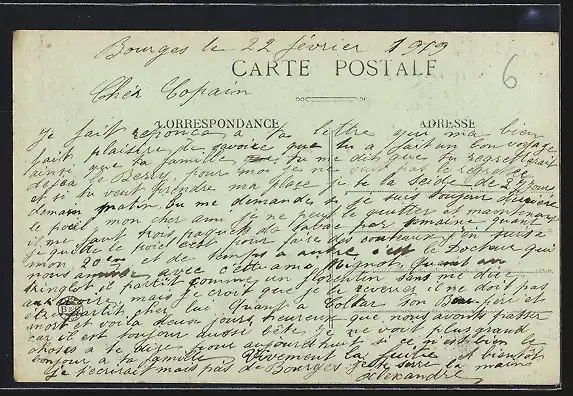 Bourges le 22 février 1919
CARTE POSTALE
6
Cher Copain
CORRESPONDANCE
ADRESSE
Je fait reponce a ta lettre qui ma bien
fait plaisire de savoire que tu a fait un bon voyage
ainsi que ta famille tu me dit que tu regretterait
deja le Berry pour moi je ne
et si tu veut prendre ma place je te la cède de suite
demain matin tu me demandes si je suis toujour
le poel mon cher ami je ne peut le quitter et maintenant
il me faut trois paquet de tabac par semaine quand
je quitte le poel c'est pour faire des
mon et de temps a autre c'est le Docteur qui
nous amuse avec cette ame Mignot, quant au
tringlot il partit comme un sans me dire
aux revoire, mais je croit que je le reverrer il ne doit pas
être partit cher lui Quant a son Beau frere et
mort et voila deux jours heureux que nous avons passer
car il est toujour aussi bête Je ne voit plus grand
choses a te dire pour aujourd'huit si ce n'est bien le
bonjour a ta famille Vivement la fuite et bientôt
Je t'écrirait mais pas de Bourges Je te serre la mains
Alexandre